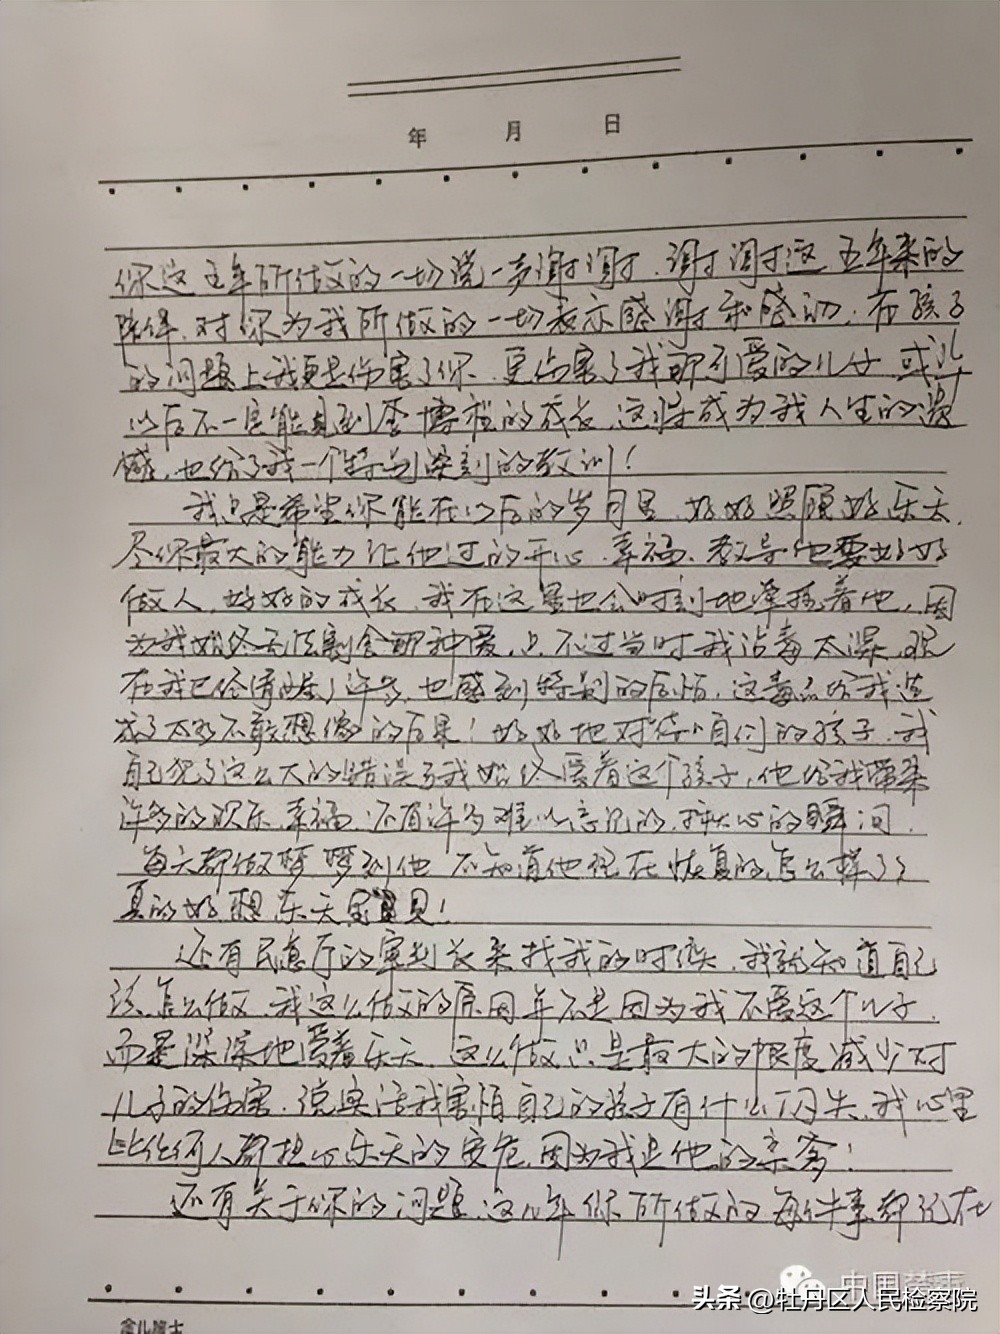 年 月 日
你这五年所做的一切说一声谢谢.谢谢这五年来的
陪伴.对你为我所做的一切表示感谢和感动.在孩子
的问题上我更是伤害了你.更伤害了我那可爱的儿女 或许
以后不一定能见到李博 的成长.这将成为我人生的遗
憾.也给了我一个特别深刻的教训!
我只是希望你能在以后的岁月里.好好照顾好乐天.
尽你最大的能力让他过的开心.幸福.教导他要好好
做人.好好的成长.我在这里也会时刻地牵挂着他,因
为我始终无法割舍那种爱.只不过当时我沾毒太深.现
在我已经清醒了许多.也感到特别的后怕.这毒品给我造
成了太多不敢想像的后果!好好地对待咱们的孩子.我
自己犯了这么大的错误 我始终爱着这个孩子,他给我带来
许多的欢乐.幸福.还有许多难以忘记的.开心的瞬间.
每天都做梦梦到他 不知道他现在恢复的怎么样了?
真的好想乐天宝贝!
还有民意厅的审判长来找我的时候.我就知道自己
该怎么做.我这么做的原因并不是因为我不爱这个儿子.
而是深深地爱着乐天.这么做只是最大的限度减少对
儿子的伤害.说实话我害怕自己的孩子有什么闪失.我心里
比任何人都担心乐天的安危.因为我是他的亲爹!
还有关于你的问题.这几年你所做的每件事都记在
中国禁毒
头条@牡丹区人民检察院